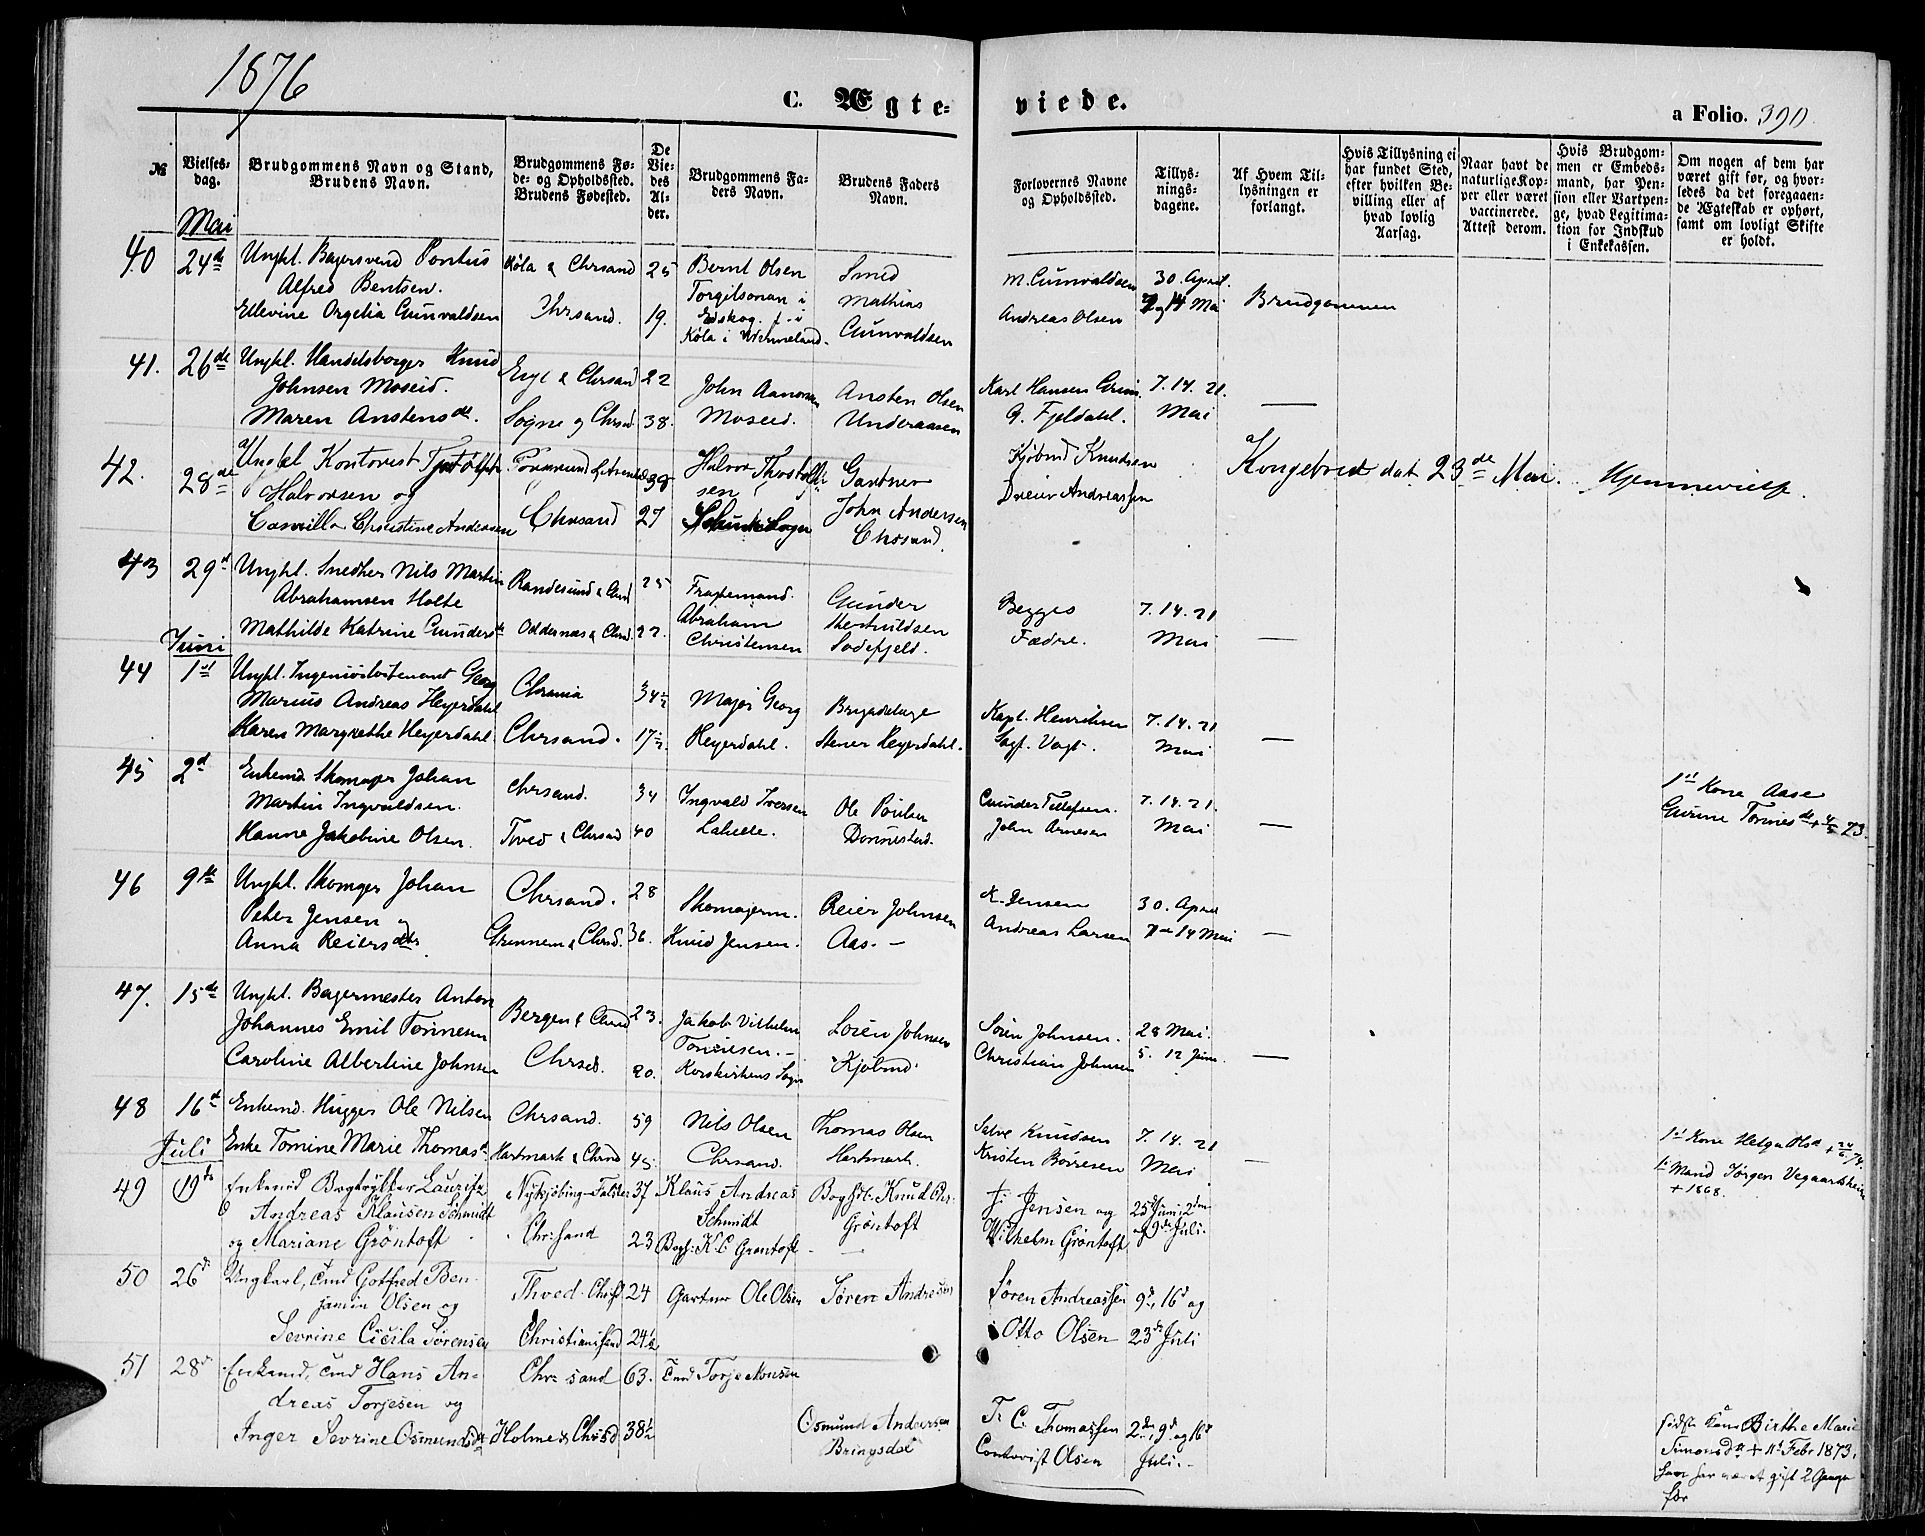 1876
C. Ægte-
viede.
a Folio. 390.
№
Vielses-
dag.
Brudgommens Navn og Stand,
Brudens Navn.
Brudgommens Fø-
de- og Opholdssted.
Brudens Fødested.
De
Vie-
des
Al-
der.
Brudgommens Fa-
ders Navn.
Brudens Faders
Navn.
Forlovernes Navne
og Opholdssted.
Tillys-
nings-
dagene.
Af Hvem Til-
lysningen er
forlangt.
Hvis Tillysning ei
har fundet Sted,
efter hvilken Be-
villing eller af
hvad lovlig
Aarsag.
Naar havt de
naturlige Kop-
per eller været
vaccinerede.
Attest derom.
Hvis Brudgom-
men er Embeds-
mand, har Pen-
sion eller Vartpen-
ge, hvad Legitima-
tion for Indskud
i Enkekassen.
Om nogen af dem har
været gift før, og hvor-
ledes da det foregaaen-
de Ægteskab er ophørt,
samt om lovligt Skifte
er holdt.
Mai
40 24de Ungkl. Bagersvend Pontus
Alfred Bentsen.
Ellevine Orgelia Gunvaldsen
Køla & Chrsand 25
Chrsand. 19.
Bernt Olsen
Torgilsonan i
Edskog
Køla i Wermeland.
Smed
Mathias
Gunvaldsen
M. Gunvaldsen
Andreas Olsen
30. April.
7 og 14 Mai
Brudgommen
41. 26de Ungkl. Handelsborger Knud
Johnsen Moseid.
Maren Anstensdt.
Chrsand 22
Sogne og Chrsd 38.
John Aanonsen
Moseid.
Ansten Olsen
Underaasen
Karl Hansen Grim
G. Fjeldahl.
7. 14. 21.
Mai —
42. 28de Ungkl Kontorist
Halvorsen og
Camilla Christine Andersen
38
Chrsand 27
Halvor
sen
Gartner
John Andersen
Chrsand.
Kjøbmd Knudsen
Dreier Andreassen
Kongebrev dat 23de Mai. Hjemmevielse.
43 29d Ungkl. Snedker Nils Martin
Abrahamsen Holte
Mathilde Katrine Gundersdt
Randesund & Chrsd 25
Oddernæs & Chrsd. 22.
Fragtemand.
Abraham
Christensen
Gunder
Sodefjeld.
Begges
Fædre.
7. 14. 21
Mai —
Juni
44 1st Ungkl. Ingeniørløitenant Georg
Marius Andreas Heyerdahl
Karen Margrethe Heyerdahl.
Chrania 34½
Chrsand. 17½.
Major Georg
Heyerdahl.
Brigadelæge
Stener Heyerdahl.
Kapt. Henrichsen
Sagf. Vogt.
7. 14. 21
Mai —
45 2d Enkemd. Skomager Johan
Martin Ingvaldsen.
Hanne Jakobine Olsen.
Chrsand. 34
Tved & Chrsand 40
Ingvald Iversen
Ole Poulsen
Dønnestad.
Gunder Tellefsen.
John Arnesen
7. 14. 21.
Mai —
1st Kone Aase
Gurine Tønnesdt + 73.
46 9de Ungkl. Skomager Johan
Peter Jensen og
Anna Reiersdtr.
Chrsand. 28
Chrsd. 36.
Skomagerm.
Knud Jensen.
Reier Johnsen
Aas. —
K. Jensen
Andreas Larsen
30. April
7 og 14 Mai —
47. 15de Ungkl. Bagermester Anton
Johannes Emil Tønnesen
Caroline Albertine Johnsen
Bergen & Chrsd 23.
Chrsd. 20.
Jakob Vilhelm
Tønnesen. —
Korskirkens Sogn
Søren Johnsen
Kjøbmd.
Søren Johnsen.
Christian Johnsen
28 Mai.
5. 12 Juni. —
48 16d Enkemd. Hugger Ole Nilsen
Enke Tomine Marie Thomasdt
Chrsand. 59
Hartmark & Chrsd 45.
Nils Olsen
Chrsand.
Thomas Olsen
Hartmark.
Salve Knudsen
Kristen Børresen
7. 14. 21
Mai —
1st Kone Helga Olsdt + 74.
1st Mand Jørgen Vegaardsheien
+ 1868.
Juli
49 19de Enkemd Bogtrykker Lauritz
Andreas Klausen Schmidt
og Mariane Grøntoft
Nykjøbing-Falster 37
Chr:sand 23
Klaus Andreas
Schmidt
Bogh: K C Grøntoft
Boghdl: Knud Chr.
Grøntoft
J: Jensen og
Wilhelm Grøntoft
25de Juni, 2den
og 9de Juli.
50 26de Ungkarl, Gotfred Ben-
jamin Olsen og
Sevrine Cicilia Sørensen
Thved. Chrsd 24
Christianssand 24½
Gartner Ole Olsen
Søren Andresen
Søren Andreassen
Otto Olsen
9d, 16d og
23de Juli
51 28de Enkemd, Hans An-
dreas Torjesen og
Inger Sevrine Osmundsdt
Chr: sand 63.
Holme & Chrsd 38½
Torje Monsen
Osmund Andersen
Bringsdal
T. C. Thomassen
Olsen
2den, 9d og 16d
Juli.
sidste Kone Birthe Marie
Simonsdt + 11te Febr 1873,
han har været gift 2 Gange
før